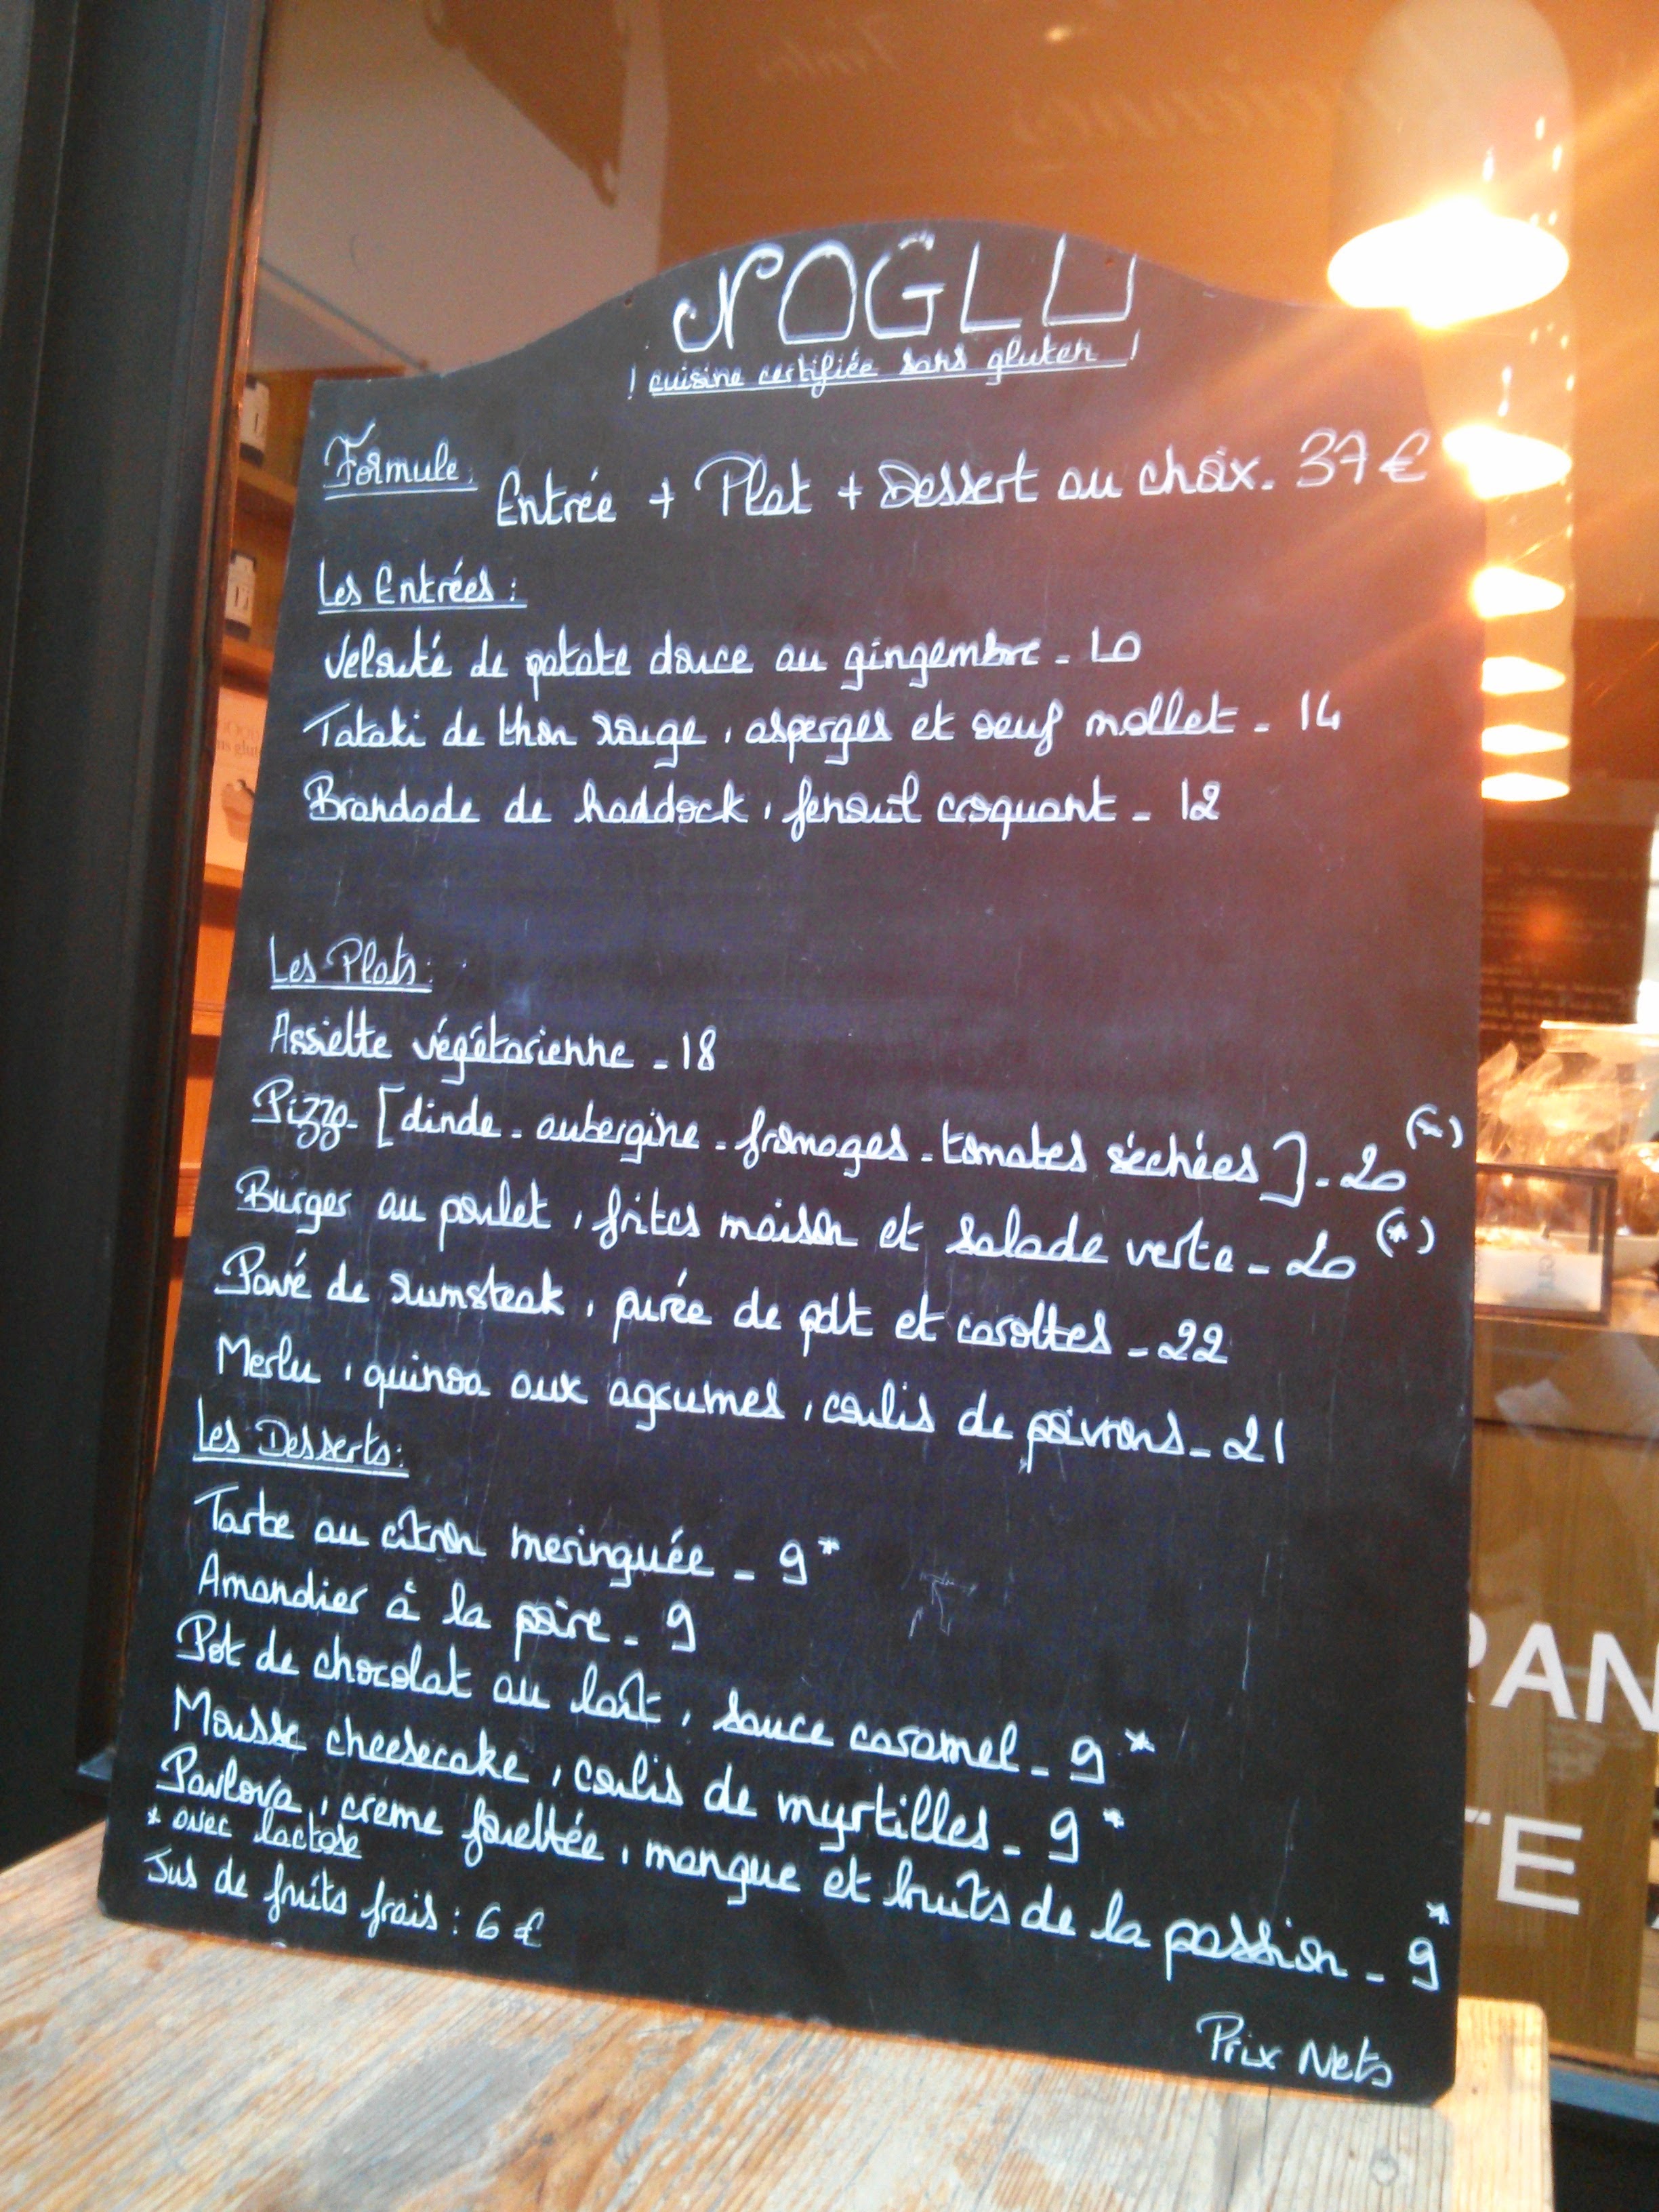 NOGLU
! cuisine certifiée sans gluten !
Formule: Entrée + Plat + Dessert au choix. 37 €
Les Entrées :
Velouté de patate douce au gingembre - 10
Tataki de thon rouge, asperges et oeuf mollet - 14
Brandade de haddock, fenouil croquant - 12
Les Plats:
Assiette végétarienne - 18
Pizza [dinde - aubergine - fromages - tomates séchées] - 20 (*)
Burger au poulet, frites maison et salade verte - 20 (*)
Pavé de rumsteak, purée de pdt et carottes - 22
Merlu, quinoa aux agrumes, coulis de poivrons - 21
Les Desserts:
Tarte au citron meringuée - 9*
Amandier à la poire - 9
Pot de chocolat au lait, sauce caramel - 9*
Mousse cheesecake, coulis de myrtilles - 9*
Pavlova, crème fouettée, mangue et fruits de la passion - 9*
* avec lactose
Jus de fruits frais : 6 €
Prix Nets
RAN
TE